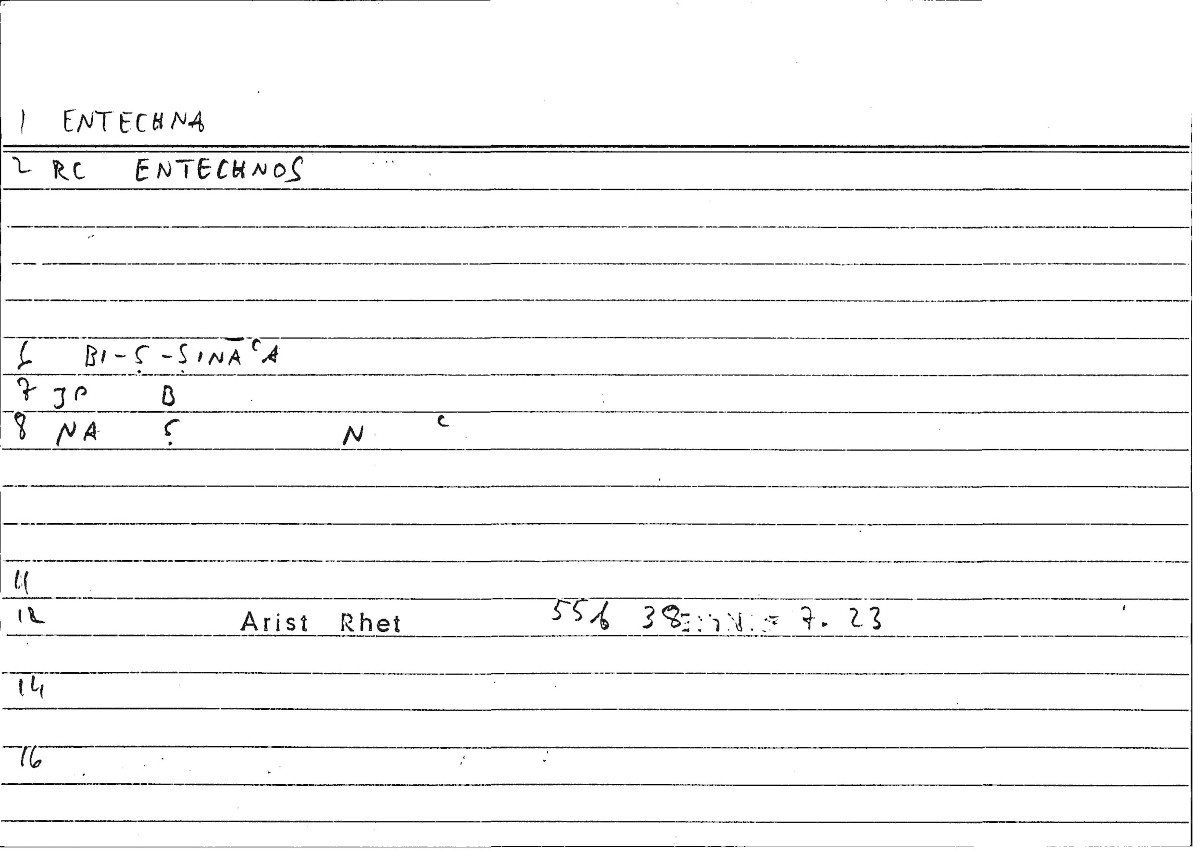 1 ENTECHNA
2 RC ENTECHNOS
6 BI-Ṣ-ṢINĀᶜA
7 JP B
8 NA Ṣ N ᶜ
11
12 Arist Rhet 38 7. 23
14
16